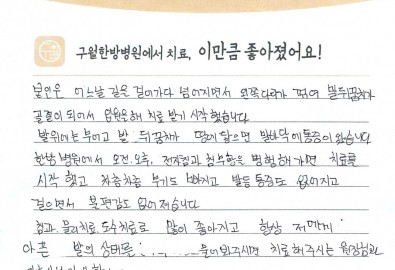 구월한방병원에서 치료, 이만큼 좋아졌어요!
본인은 어느날 길을 걸어가다 넘어지면서 왼쪽다리가 뒤꿈치가
골절이 되어서 입원을해 치료 받기 시작했습니다
발위에는 부어고 발 뒤꿈치가 땅에 닿으면 발바닥에 통증이 왔습니다
한방병원에서 오전.오후, 전자침과 첩부항을 병행해 가면 치료를
시작 했고 차츰차츰 부기도 빠지고 발등 통증도 없어지고
걸으면서 불편감도 없어졌습니다
결과 물리치료 도수치료로 많이 좋아지고 항상 저에게
아픈 발의 상태를 물어봐주시면 치료해주시는 원장님과